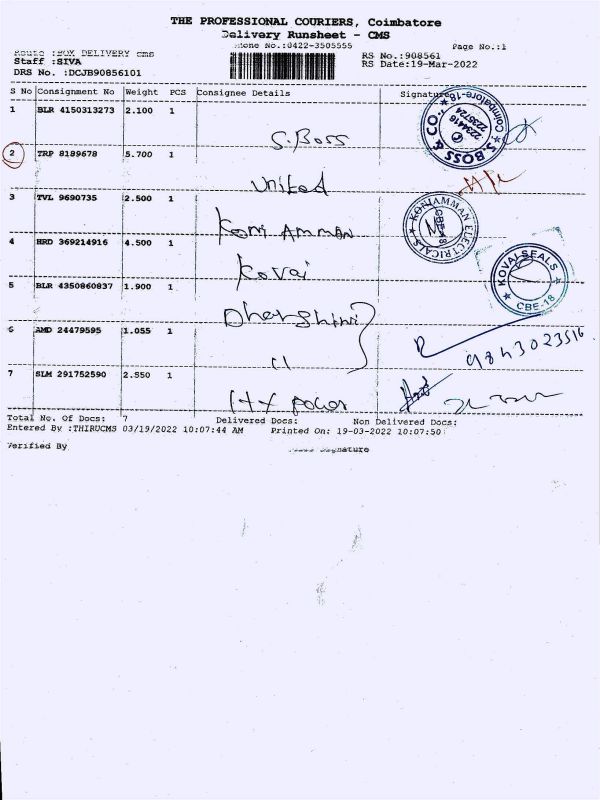 THE PROFESSIONAL COURIERS, Coimbatore
Delivery Runsheet - CMS
Phone No.:0422-3505555 Page No.:1
Route :BOX DELIVERY cms RS No.:908561
Staff :SIVA RS Date:19-Mar-2022
DRS No. :DCJB90856101
S No Consignment No Weight PCS Consignee Details Signature
1 BLR 4150313273 2.100 1
S. Boss
S.BOSS & CO.,
Coimbatore-18
2234418
2235724
2 TRP 8189678 5.700 1
United
3 TVL 9690735 2.500 1
Koni Amman
KONIAMMAN ELECTRICALS
CBE-18
4 HRD 369214916 4.500 1
Kovai
KOVAI SEALS
CBE-18
5 BLR 4350860837 1.900 1
6 AMD 24479595 1.055 1
9843023516
7 SLM 291752590 2.550 1
Total No. Of Docs: 7 Delivered Docs: Non Delivered Docs:
Entered By :THIRUCMS 03/19/2022 10:07:44 AM Printed On: 19-03-2022 10:07:50
Verified By Signature